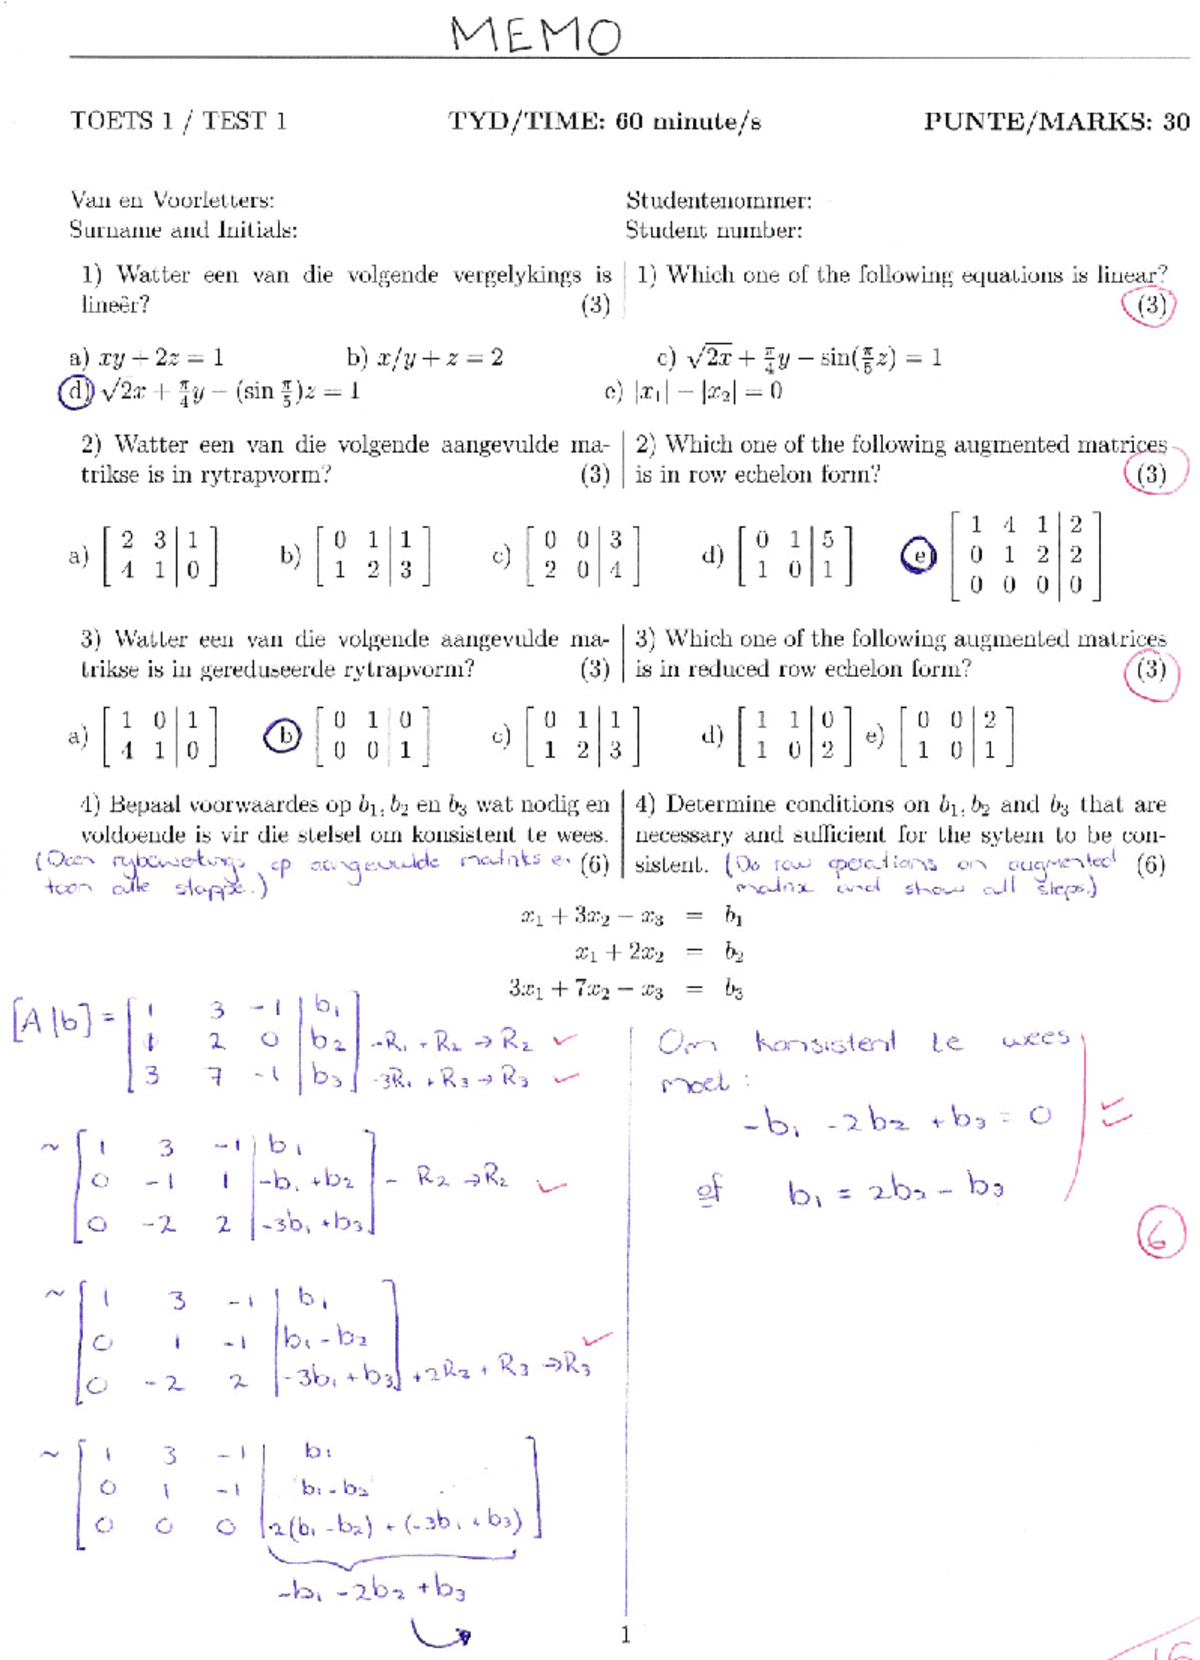 MEMO
TOETS 1 / TEST 1 TYD/TIME: 60 minute/s PUNTE/MARKS: 30
Van en Voorletters: Studentenommer:
Surname and Initials: Student number:
1) Watter een van die volgende vergelykings is lineêr? (3)
1) Which one of the following equations is linear? (3)
a) xy + 2z = 1 b) x/y + z = 2 c) √2x + π/4 y − sin(π/5 z) = 1
d) √2x + π/4 y − (sin π/5)z = 1 e) |x₁| − |x₂| = 0
2) Watter een van die volgende aangevulde ma-
trikse is in rytrapvorm? (3)
2) Which one of the following augmented matrices
is in row echelon form? (3)
a) [2 3 | 1; 4 1 | 0] b) [0 1 | 1; 1 2 | 3] c) [0 0 | 3; 2 0 | 4] d) [0 1 | 5; 1 0 | 1] e) [1 4 1 | 2; 0 1 2 | 2; 0 0 0 | 0]
3) Watter een van die volgende aangevulde ma-
trikse is in gereduseerde rytrapvorm? (3)
3) Which one of the following augmented matrices
is in reduced row echelon form? (3)
a) [1 0 | 1; 4 1 | 0] b) [0 1 | 0; 0 0 | 1] c) [0 1 | 1; 1 2 | 3] d) [1 1 | 0; 1 0 | 2] e) [0 0 | 2; 1 0 | 1]
4) Bepaal voorwaardes op b₁, b₂ en b₃ wat nodig en
voldoende is vir die stelsel om konsistent te wees.
(Doen rybewerkings op aangevulde matriks en (6)
toon alle stappe.)
4) Determine conditions on b₁, b₂ and b₃ that are
necessary and sufficient for the sytem to be con-
sistent. (Do row operations on augmented (6)
matrix and show all steps.)
x₁ + 3x₂ − x₃ = b₁
x₁ + 2x₂ = b₂
3x₁ + 7x₂ − x₃ = b₃
[A|b] = [1 3 -1 | b₁
1 2 0 | b₂] -R₁ + R₂ → R₂ ✓
3 7 -1 | b₃] -3R₁ + R₃ → R₃ ✓
~ [1 3 -1 | b₁
0 -1 1 | -b₁ + b₂] - R₂ → R₂ ✓
0 -2 2 | -3b₁ + b₃]
~ [1 3 -1 | b₁
0 1 -1 | b₁ - b₂
0 -2 2 | -3b₁ + b₃] +2R₂ + R₃ → R₃ ✓
~ [1 3 -1 | b₁
0 1 -1 | b₁ - b₂
0 0 0 | 2(b₁ - b₂) + (-3b₁ + b₃)]
-b₁ - 2b₂ + b₃
Om konsistent te wees
moet:
-b₁ - 2b₂ + b₃ = 0
of b₁ = 2b₂ - b₃
6
1